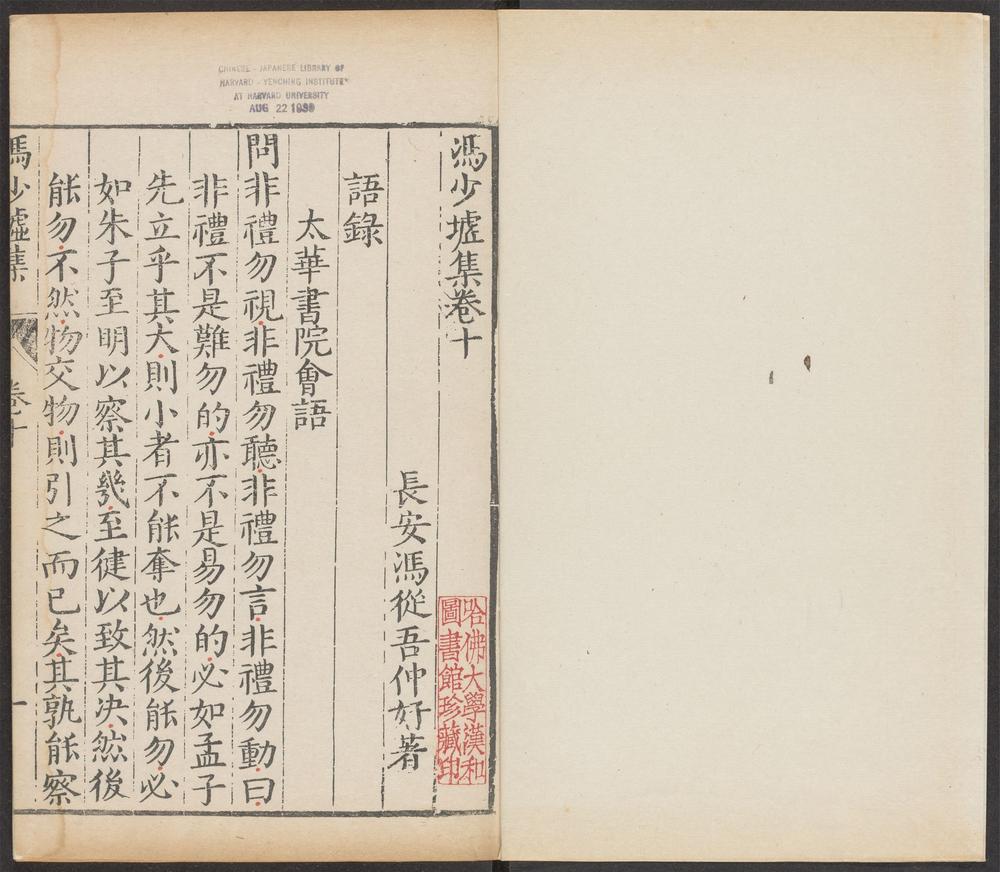 CHINESE - JAPANESE LIBRARY OF
HARVARD - YENCHING INSTITUTE
AT HARVARD UNIVERSITY
AUG 22 1939
馮少墟集卷十
哈佛大學漢和
圖書館珍藏印
長安馮從吾仲好著
語錄
太華書院會語
問非禮勿視非禮勿聽非禮勿言非禮勿動曰
非禮不是難勿的亦不是易勿的必如孟子
先立乎其大則小者不能奪也然後能勿必
如朱子至明以察其幾至徤以致其决然後
能勿不然物交物則引之而已矣其孰能察
馮少墟集
卷十
一